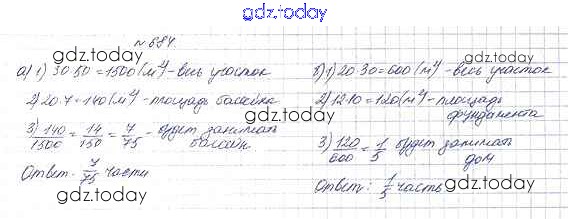 gdz.today
№ 884
gdz.today
а) 1) 30·50=1500(м²) - весь участок
2) 20·7=140(м²) - площадь бассейна
3) 140/1500 = 14/150 = 7/75 - будет занимать бассейн
Ответ: 7/75 части
gdz.today
б) 1) 20·30=600(м²) - весь участок
gdz.today
2) 12·10=120(м²) - площадь фундамента
3) 120/600 = 1/5 будет занимать дом
Ответ: 1/5 часть
gdz.today
gdz.today